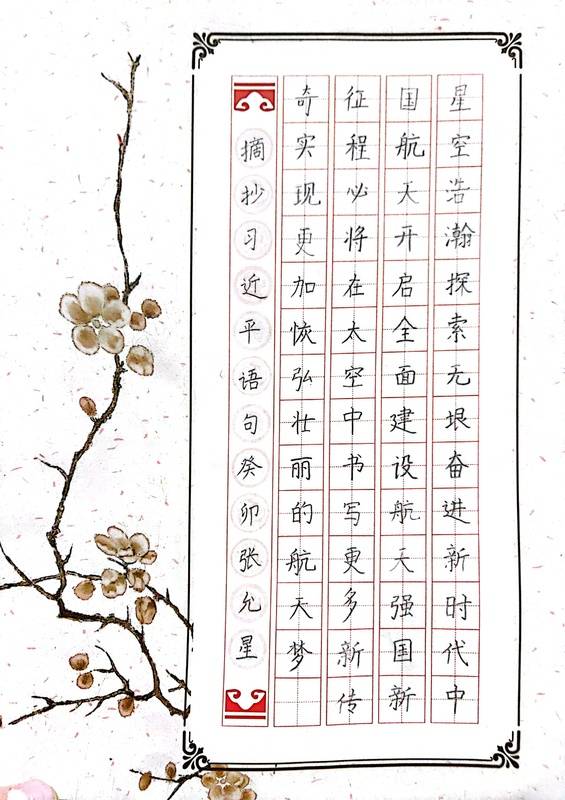 星空浩瀚探索无垠奋进新时代中
国航天开启全面建设航天强国新
征程必将在太空中书写更多新传
奇实现更加恢弘壮丽的航天梦
摘抄习近平语句癸卯张允星